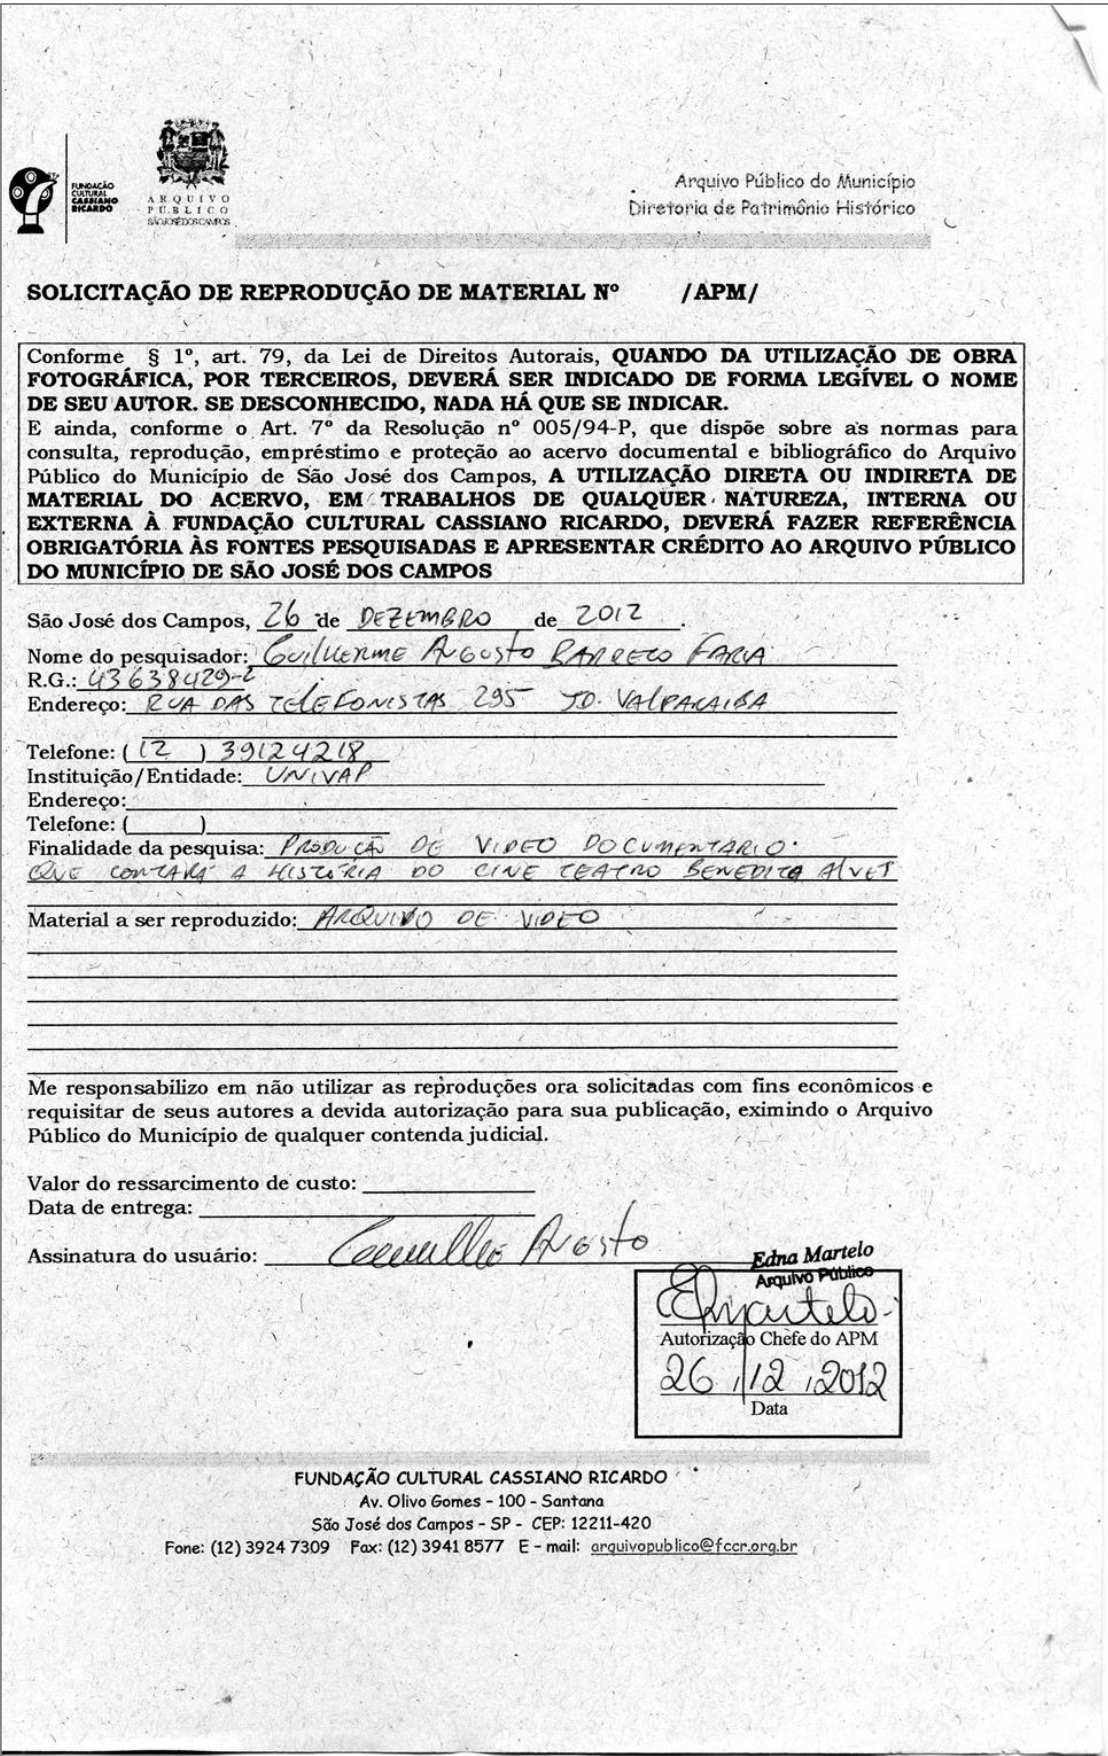 FUNDAÇÃO
CULTURAL
CASSIANO
RICARDO
ARQUIVO
PÚBLICO
SÃO JOSÉ DOS CAMPOS
Arquivo Público do Município
Diretoria de Patrimônio Histórico
SOLICITAÇÃO DE REPRODUÇÃO DE MATERIAL Nº /APM/
Conforme § 1º, art. 79, da Lei de Direitos Autorais, QUANDO DA UTILIZAÇÃO DE OBRA
FOTOGRÁFICA, POR TERCEIROS, DEVERÁ SER INDICADO DE FORMA LEGÍVEL O NOME
DE SEU AUTOR. SE DESCONHECIDO, NADA HÁ QUE SE INDICAR.
E ainda, conforme o Art. 7º da Resolução nº 005/94-P, que dispõe sobre as normas para
consulta, reprodução, empréstimo e proteção ao acervo documental e bibliográfico do Arquivo
Público do Município de São José dos Campos, A UTILIZAÇÃO DIRETA OU INDIRETA DE
MATERIAL DO ACERVO, EM TRABALHOS DE QUALQUER NATUREZA, INTERNA OU
EXTERNA À FUNDAÇÃO CULTURAL CASSIANO RICARDO, DEVERÁ FAZER REFERÊNCIA
OBRIGATÓRIA ÀS FONTES PESQUISADAS E APRESENTAR CRÉDITO AO ARQUIVO PÚBLICO
DO MUNICÍPIO DE SÃO JOSÉ DOS CAMPOS
São José dos Campos, 26 de DEZEMBRO de 2012.
Nome do pesquisador: GUILHERME AUGUSTO BARRETO FARIA
R.G.: 43638429-2
Endereço: RUA DAS TELEFONISTAS 295 JD. VALPARAIBA
Telefone: (12) 39124218
Instituição/Entidade: UNIVAP
Endereço:
Telefone: ( )
Finalidade da pesquisa: PRODUÇÃO DE VIDEO DOCUMENTARIO
QUE CONTARÁ A HISTÓRIA DO CINE TEATRO BENEDITO ALVES
Material a ser reproduzido: ARQUIVO DE VIDEO
Me responsabilizo em não utilizar as reproduções ora solicitadas com fins econômicos e
requisitar de seus autores a devida autorização para sua publicação, eximindo o Arquivo
Público do Município de qualquer contenda judicial.
Valor do ressarcimento de custo:
Data de entrega:
Assinatura do usuário: Guilherme Augusto
Edna Martelo
Arquivo Público
EMartelo
Autorização Chefe do APM
26/12/2012
Data
FUNDAÇÃO CULTURAL CASSIANO RICARDO
Av. Olivo Gomes - 100 - Santana
São José dos Campos - SP - CEP: 12211-420
Fone: (12) 3924 7309 Fax: (12) 3941 8577 E - mail: arquivopublico@fccr.org.br